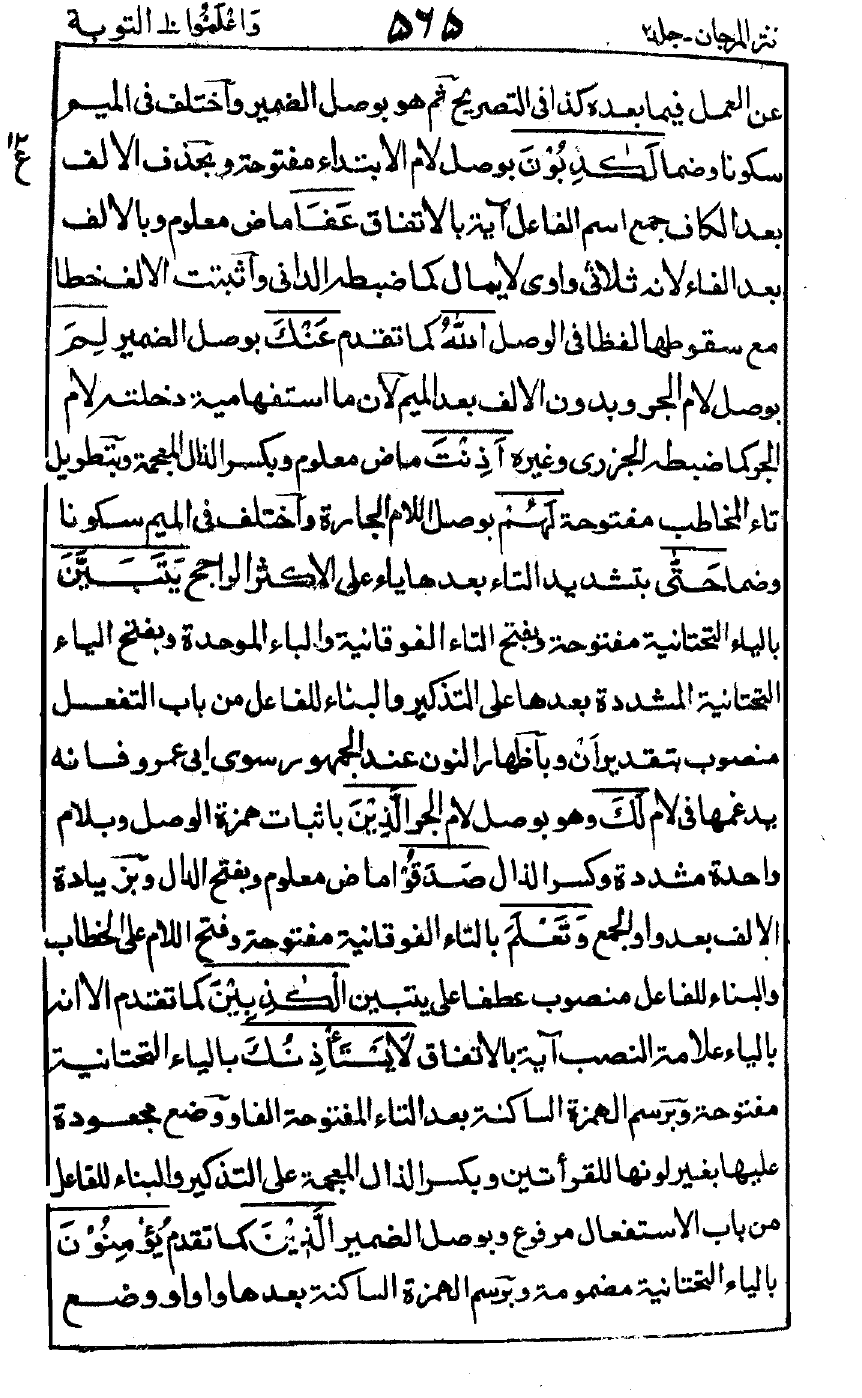 نثر المرجان - جلد ٢ ٥٦٥ واعلموا ١٠ التوبة
عن العمل فيما بعده كذا فى التصريح ثم هو بوصل الضمير واختلف فى الميم
سكونا وضما لَكٰذِبُوْنَ بوصل لام الابتداء مفتوحة وبحذف الالف
بعد الكاف جمع اسم الفاعل آية بالاتفاق عَفَا ماض معلوم وبالالف
بعد الفاء لانه ثلاثى واوى لا يمال كما ضبطه الدانى واثبتت الالف خطا
مع سقوطها لفظا فى الوصل اللّٰهُ كما تقدم عَنْكَ بوصل الضمير لِمَ
بوصل لام الجر وبدون الالف بعد الميم لان ما استفهامية دخلته لام
الجر كما ضبطه الجزرى وغيره اَذِنْتَ ماض معلوم وبكسر الذال المعجمة وبتطويل
تاء المخاطب مفتوحة لَهُمْ بوصل اللام الجارة واختلف فى الميم سكونا
وضما حَتّٰى بتشديد التاء بعدها ياء على الاكثر الراجح يَتَبَيَّنَ
بالياء التحتانية مفتوحة وبفتح التاء الفوقانية والباء الموحدة وبفتح الياء
التحتانية المشددة بعدها على التذكير والبناء للفاعل من باب التفعل
منصوب بتقدير ان وباظهار النون عند الجمهور سوى ابى عمرو فانه
يدغمها فى لام لَكَ وهو بوصل لام الجر الَّذِيْنَ باثبات همزة الوصل وبلام
واحدة مشددة وكسر الذال صَدَقُوْا ماض معلوم وبفتح الدال وبزيادة
الالف بعد واو الجمع وَتَعْلَمَ بالتاء الفوقانية مفتوحة وفتح اللام على الخطاب
والبناء للفاعل منصوب عطفا على يتبين الْكٰذِبِيْنَ كما تقدم الا انه
بالياء علامة النصب آية بالاتفاق لَا يَسْتَأْذِنُكَ بالياء التحتانية
مفتوحة وبرسم الهمزة الساكنة بعد التاء المفتوحة الفا ووضع مجعودة
عليها بغير لونها للقرأتين وبكسر الذال المعجمة على التذكير والبناء للفاعل
من باب الاستفعال مرفوع وبوصل الضمير الَّذِيْنَ كما تقدم يُؤْمِنُوْنَ
بالياء التحتانية مضمومة وبرسم الهمزة الساكنة بعدها واوا ووضع